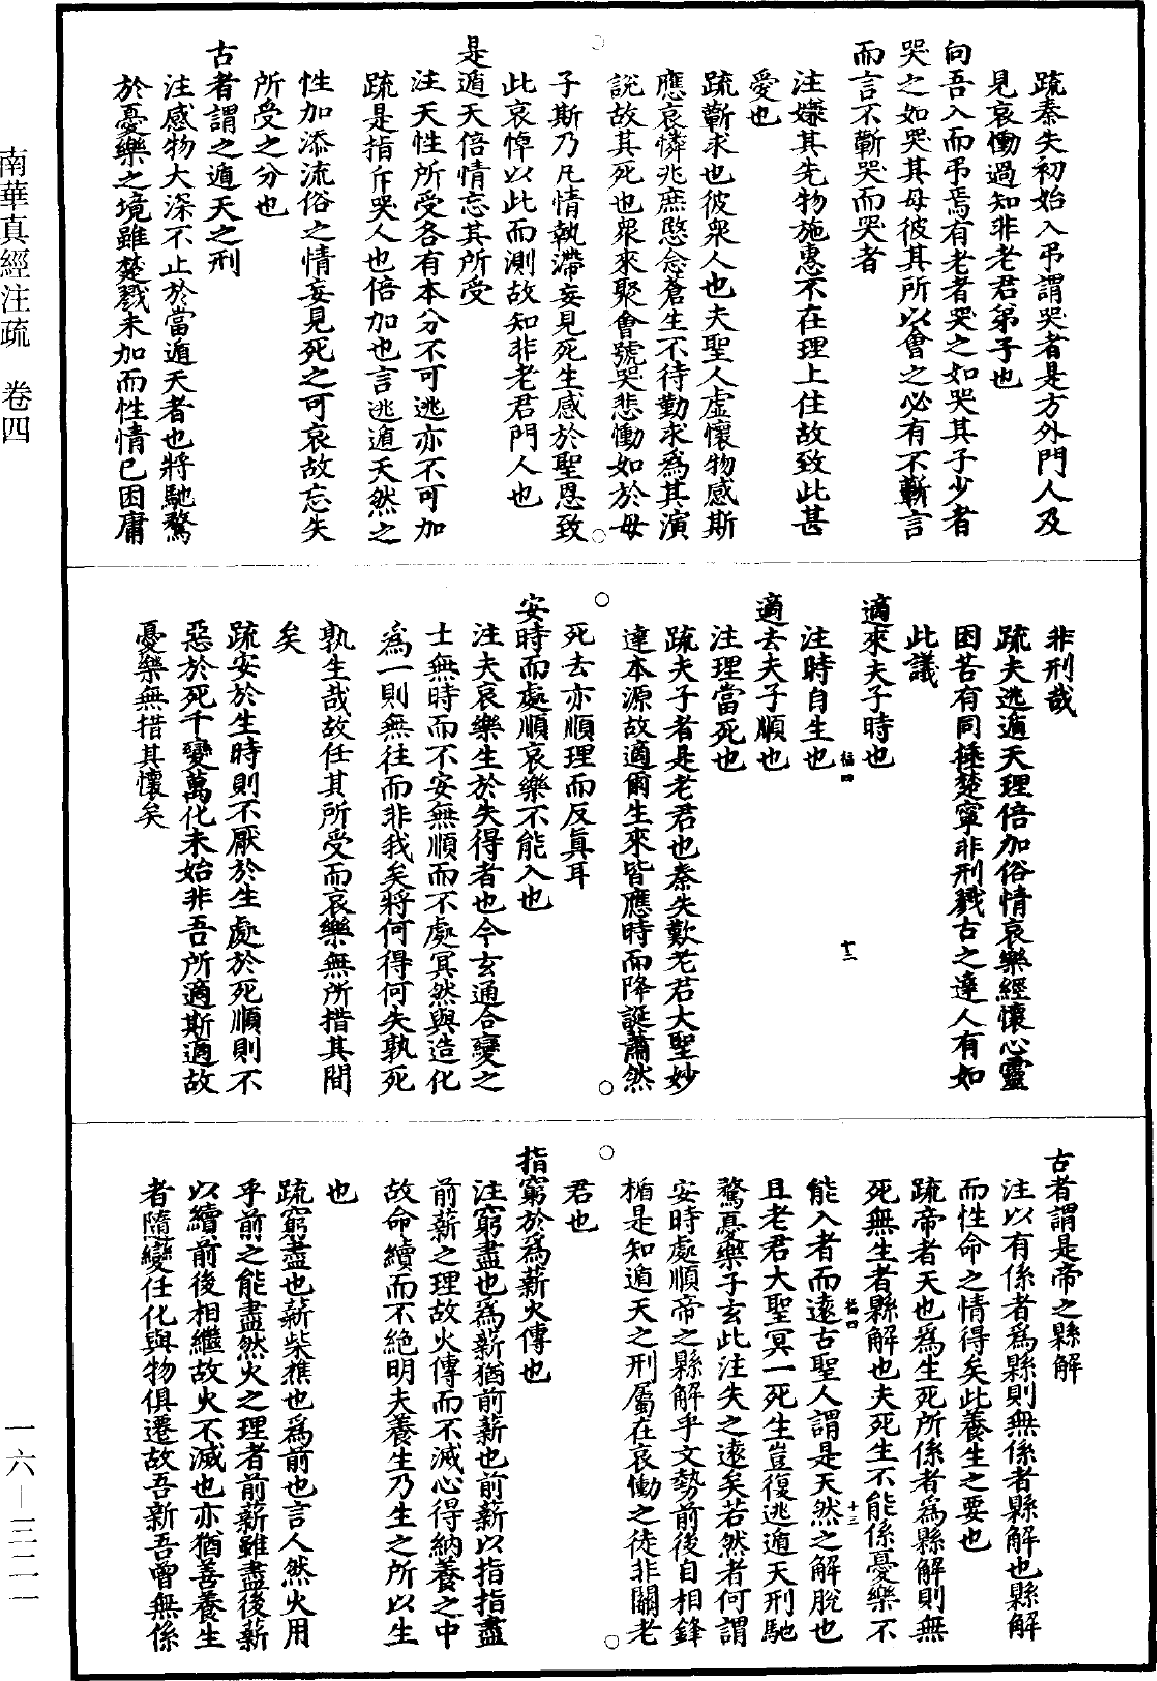 疏秦失初始入弔謂哭者是方外門人及
見哀慟過知非老君弟子也
向吾入而弔焉有老者哭之如哭其子少者
哭之如哭其母彼其所以會之必有不蘄言
而言不蘄哭而哭者
注嫌其先物施惠不在理上住故致此甚
愛也
疏蘄求也彼衆人也夫聖人虛懷物感斯
應哀憐兆庶愍念蒼生不待勤求爲其演
說故其死也衆來聚會號哭悲慟如於母
子斯乃凡情執滯妄見死生感於聖恩致
此哀悼以此而測故知非老君門人也
是遁天倍情忘其所受
注天性所受各有本分不可逃亦不可加
疏是指斥哭人也倍加也言逃遁天然之
性加添流俗之情妄見死之可哀故忘失
所受之分也
古者謂之遁天之刑
注感物大深不止於當遁天者也將馳騖
於憂樂之境雖楚戮未加而性情已困庸
非刑哉
疏夫逃遁天理倍加俗情哀樂經懷心靈
困苦有同捶楚寧非刑戮古之達人有如
此議
適來夫子時也
注時自生也
適去夫子順也
注理當死也
疏夫子者是老君也秦失歎老君大聖妙
達本源故適爾生來皆應時而降誕蕭然
死去亦順理而反真耳
安時而處順哀樂不能入也
注夫哀樂生於失得者也今玄通合變之
士無時而不安無順而不處冥然與造化
爲一則無往而非我矣將何得何失孰死
孰生哉故任其所受而哀樂無所措其間
矣
疏安於生時則不厭於生處於死順則不
惡於死千變萬化未始非吾所適斯適故
憂樂無措其懷矣
古者謂是帝之縣解
注以有係者爲縣則無係者縣解也縣解
而性命之情得矣此養生之要也
疏帝者天也爲生死所係者爲縣解則無
死無生者縣解也夫死生不能係憂樂不
能入者而遠古聖人謂是天然之解脫也
且老君大聖冥一死生豈復逃遁天刑馳
騖憂樂子玄此注失之遠矣若然者何謂
安時處順帝之縣解乎文勢前後自相鋒
楯是知遁天之刑屬在哀慟之徒非關老
君也
指窮於爲薪火傳也
注窮盡也爲薪猶前薪也前薪以指指盡
前薪之理故火傳而不滅心得納養之中
故命續而不絕明夫養生乃生之所以生
也
疏窮盡也薪柴樵也爲前也言人然火用
乎前之能盡然火之理者前薪雖盡後薪
以續前後相繼故火不滅也亦猶善養生
者隨變任化與物俱遷故吾新吾曾無係
南華真經注疏 卷四
一六—三二一